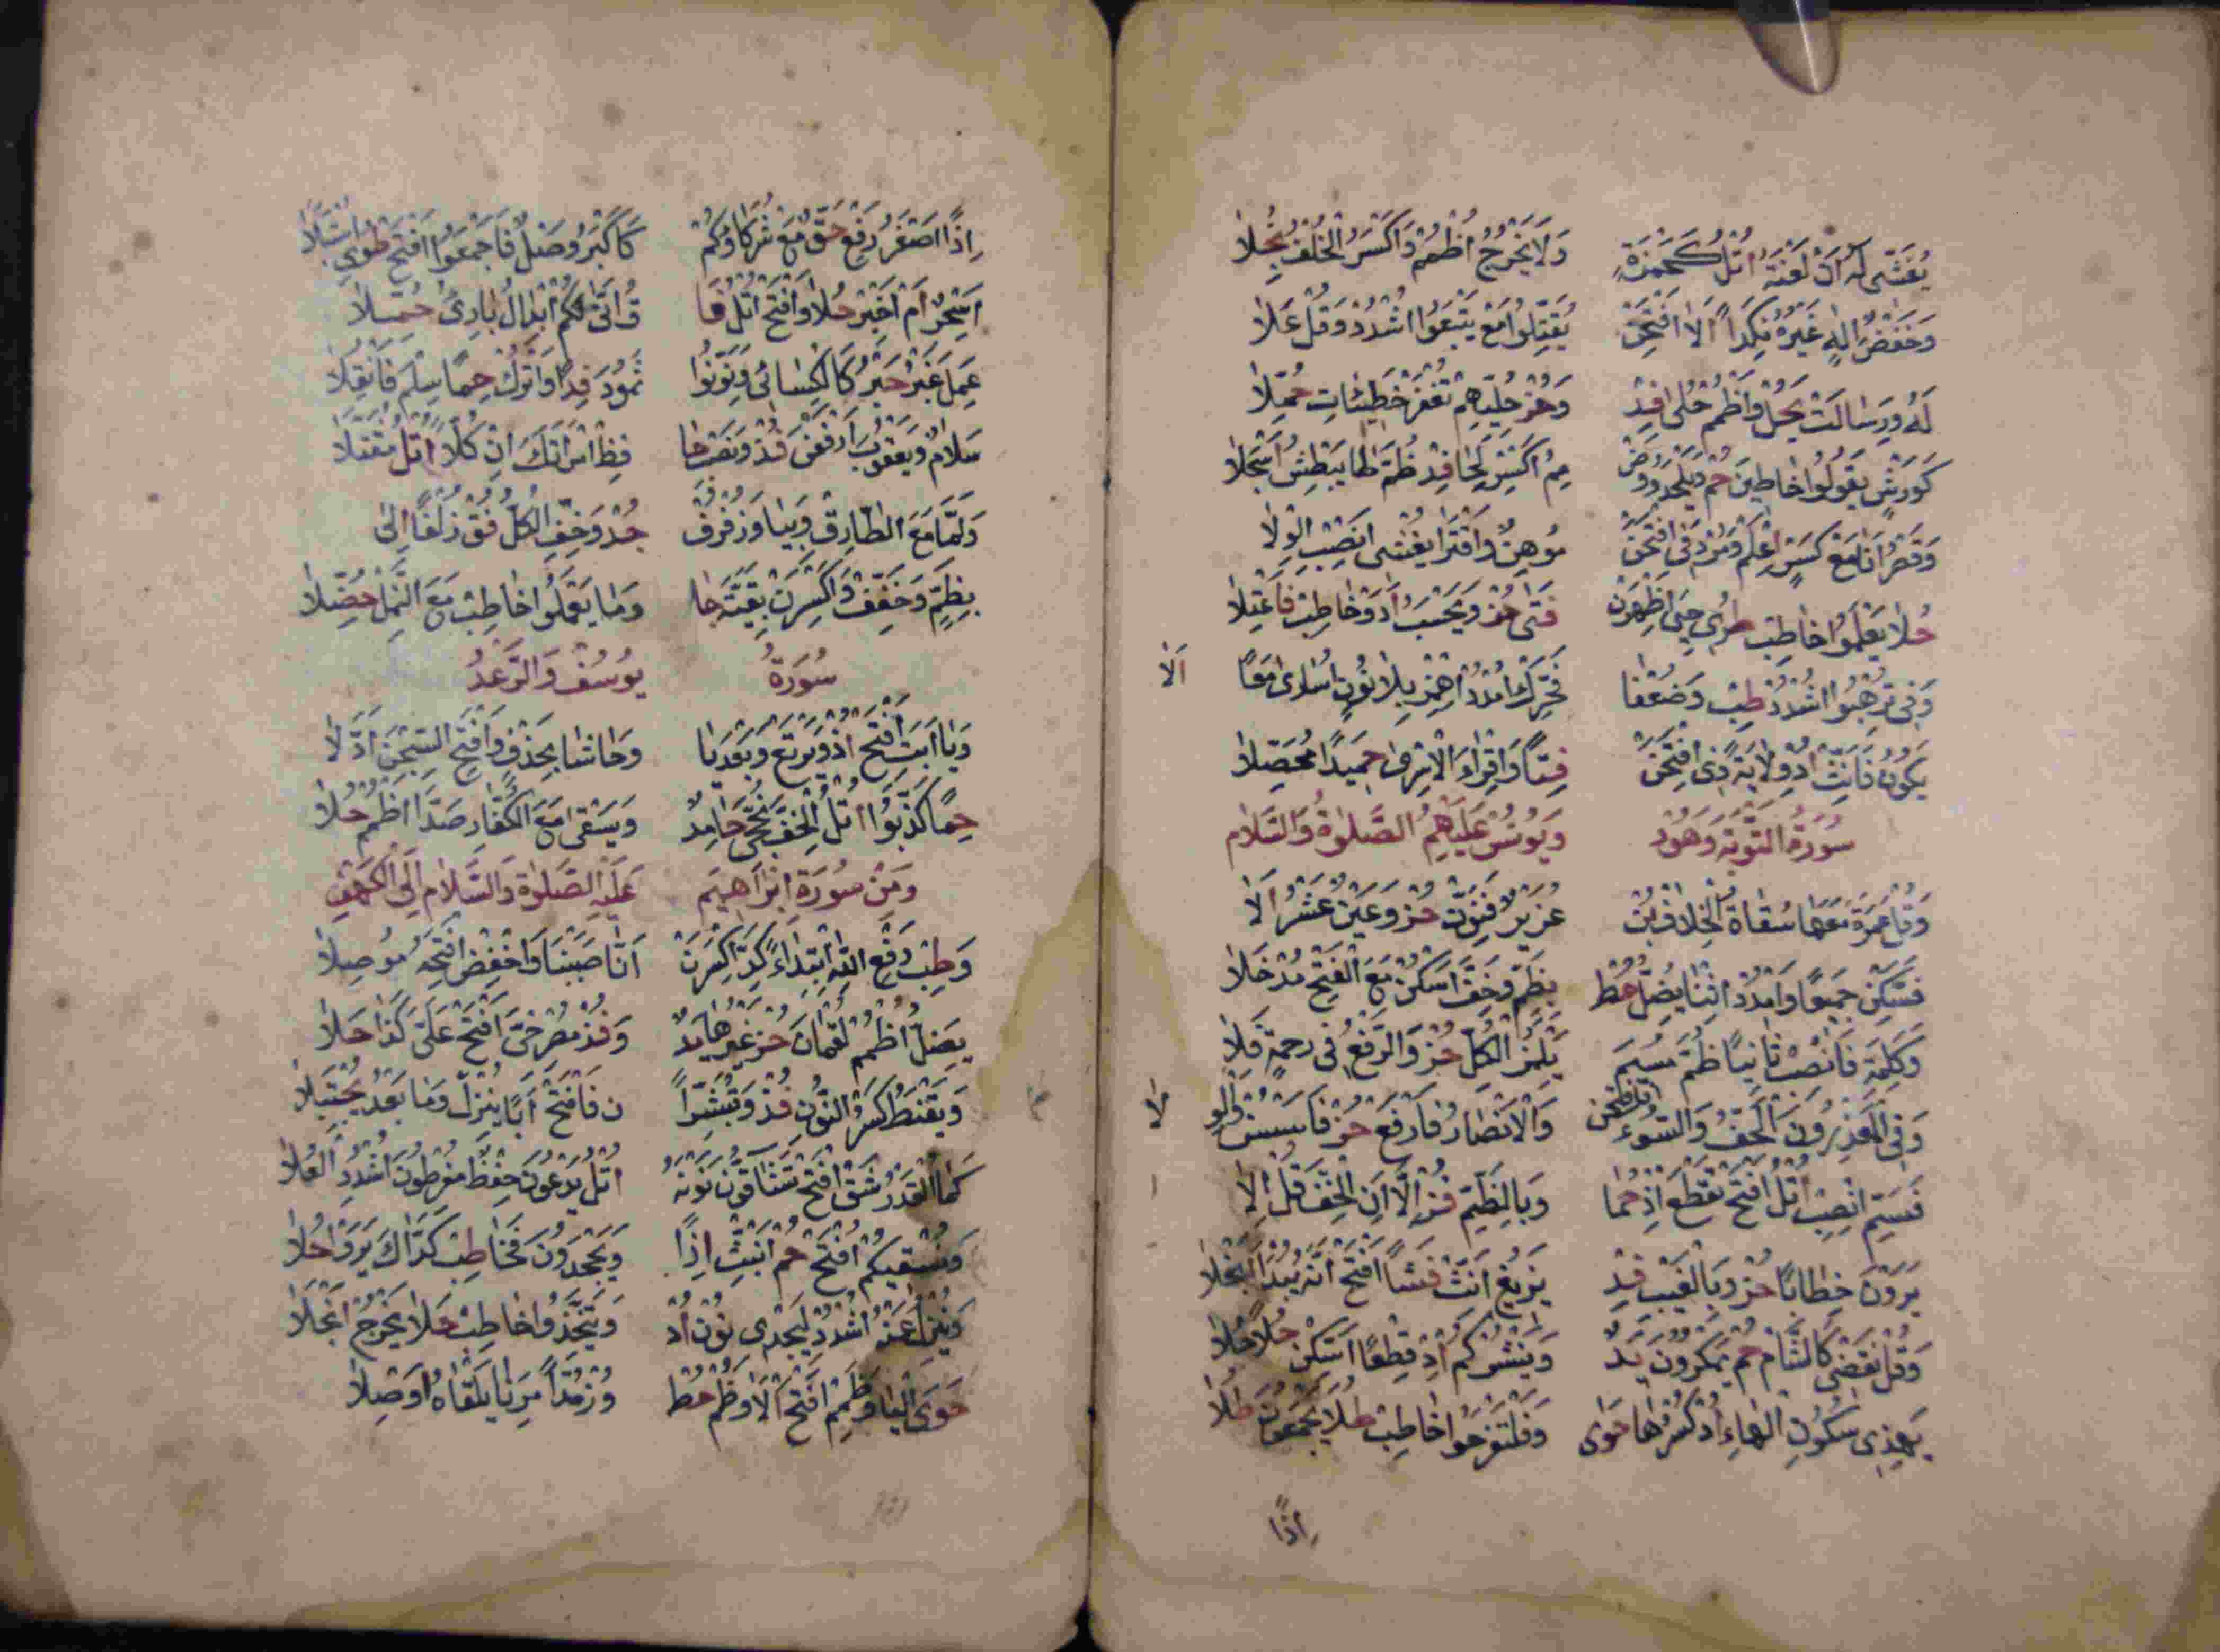 يُغَشِّى لَهُ اَنْ لَعْنَةُ اتْلُ كَحَمْزَةٍ وَلَا يَخْرُجُ اضْمُمْ وَاكْسِرِ الْخُلْفُ بُجِّلَا
وَخَفْضُ اِلٰهٍ غَيْرُهُ نَكِدًا اَلَا افْتَحَنْ يُقَتِّلُوا مَعَ يَتْبَعُوا اشْدُدْ وَقُلْ عَلَا
لَهُ وَرِسَالَتْ يَحْلُ وَاضْمُمْ حُلِىْ فِدْ وَحُزْ حَلْيِهِمْ تُغْفَرْ خَطِيْئَاتُ حُمِّلَا
كَوَرْشٍ يَقُولُوا خَاطِبَنْ حُمْ وَيَلْحَدُوا ضْ مُمِ اكْسِرْ كَحَا فِدْ ضُمَّ طَا يَبْطِشُ اسْجِلَا
وَقَصْرُ اَنَا مَعْ كَسْرٍ اعْلَمْ وَمُرْدَفِى افْتَحَنْ مُوهِنُ وَاقْرَا يُغْشِى انْصِبِ الْوِلَا
حُلَا يَعْمَلُوا خَاطِبْ طَوٰى حَىَّ اظْهِرَنْ فَتًى حُزْ وَيَحْسَبْ اُدْ وَخَاطِبَ فَاعْتَلَا
وَفِى تُرْهِبُوا اشْدُدْ طِبْ وَضُعْفًا فَحَرِّكِ امْدُدِ اهْمِزْ بِلَا نُوْنٍ اُسَارٰى مَعًا اَلَا
يَكُونَ فَاَنِّثْ اِذْ وَلَايَةِ ذِى افْتَحَنْ فِتًى وَاقْرَاِ الْاَسْرٰى حَمِيْدًا مُحَصِّلَا
سُورَةُ التَّوْبَةِ وَهُوْد وَيُونُسْ عَلَيْهِمُ الصَّلٰوةُ وَالسَّلَام
وَقُلْ عَمَرَهْ مَعْهَا سُقَاةَ الْخِلَافِ بِنْ عُزَيْرُ فَنَوِّنْ حُزْ وَعَيْنَ عَشَرْ اَلَا
فَسَكِّنْ جَمِيعًا وَامْدُدِ اثْنَا يُضَلُّ حُطْ بِضَمٍّ وَخَفَّ اسْكِنْ مَعَ الْفَتْحِ مُدْخَلَا
وَكَلِمَةُ فَانْصِبْ ثَانِيًا ضُمَّ مِيمَ يَلْمِزُ الْكُلُّ حُزْ وَالرَّفْعُ فِى رَحْمَةٍ فَلَا
وَفِى الْمُعْذِرُونَ الْخِفُّ وَالسُّوْءِ افْتَحَنْ وَالْاَنْصَارُ فَارْفَعْ حُزْ فَاَسَّسَ وَالْوِ لَا
فَسَمِّ انْصِبِ اتْلُ افْتَحْ تَقَطَّعَ اِذْ حُمَا وَبِالضَّمِّ فُزْ اِلَّا اِنِ الْخِفُّ قُلْ اِلَا
يَرَوْنَ خِطَابًا حُزْ وَبِالْغَيْبِ فِدْ يَزِيغُ اَنِّثْ فَشَا افْتَحْ اَنَّهُ يَبْدَؤُا انْجَلَا
وَقُلْ لَقَضَى كَالشَّامِ حُمْ يَمْكُرُونَ يَدْ وَيَنْشُرُكُمْ اِذْ قِطْعًا اسْكِنْ حُلًا حَلَا
يَهِدِّى سُكُوْنُ الْهَاءِ اِذْ كَسْرُهَا حَوٰى وَفَلْتَفْرَحُوا خَاطِبْ طُلَا يَجْمَعُونَ طُلَا
اِذًا
اِذًا اصْغَرُ رَفْعٌ حَقَّ مَعْ شُرَكَاؤُكُمْ كَاَكْبَرُ وَصِلْ فَاجْمَعُوا افْتَحْ طَوٰى اسْئَلَا
اَسِحْرُ اَمَ اخْبِرْ حُلَا وَافْتَحِ اتْلُ فَا قَ اِنِّى لَكُمْ اِبْدَالُ بَادِئَ حُمِّلَا
عَمِلْ غَيْرَ حَبْرٌ كَالْكِسَائِى وَنَوَّنُوا ثَمُوْدَ فِدًا وَاتْرُكْ حِمًا سِلْمُ فَانْقُلَا
سَلَامٌ وَيَعْقُوبَ ارْفَعَنْ فُزْ وَنَصْبَ حَا فِظِ امْرَاَتُكَ اِنْ كُلًّا اتْلُ مُثَقِّلَا
وَلَمَّا مَعَ الطَّارِقْ وَيَا وَزُخْرُفَ جُدْ وَخِفُّ الْكُلِّ فُقْ زُلَفًا اِلٰى
بِضَمٍّ وَخَفِّفْ وَاكْسِرَنْ بِقْيَةٍ جَا وَمَا يَعْمَلُوا خَاطِبْ مَعَ النَّمْلِ حُصِّلَا
سُورَةُ يُوسُفْ وَالرَّعْدُ
وَيَا اَبَتَ افْتَحْ اُدْ وَنَرْتَعْ وَبَعْدَ يَا وَحَاشَا بِحَذْفٍ وَافْتَحِ السِّجْنُ اَوَّلَا
حِمًا كُذِّبُوا اتْلُ الْخِفُّ نُجِّى حَامِدٌ وَيُسْقٰى مَعَ الْكُفَّارُ صَدَّ اضْمُمْ حُلَا
وَمِنْ سُورَةِ اِبْرَاهِيمَ عَلَيْهِ الصَّلٰوةُ وَالسَّلَام اِلَى الْكَهْفِ
وَطِبْ رَفْعَ اللّٰهِ ابْتِدَاءً كَذَا اكْسِرَنْ اَنَّا صَبَبْنَا وَاخْفِضِ افْتَحْهُ مُوْصِلَا
يَضِلُّ اضْمُمْ لُقْمَانَ حُزْ غَيْرُهَا يَدٌ وَفُزْ مُصْرِخِىَّ افْتَحْ عَلَىَّ كَذَا حَلَا
وَيَقْنَطُ كَسْرُ النُّوْنِ فُزْ وَتُبَشِّرُ نِ فَافْتَحْ اَبًا يُنْزِلْ وَمَا بَعْدُ يُجْتَلَا
كَمَا الْقَدْرِ شِقِّ افْتَحْ تُشَاقُّوْنِ نُوْنَهُ اتْلُ يَدْعُونَ حِفْظٌ مُفْرِطُونَ اشْدُدِ الْعُلَا
وَنُسْقِيكُمْ افْتَحْ حُمْ اَنِّثْ اِذًا وَيَجْحَدُونَ فَخَاطِبْ كَذَاكَ يَرَوْا حُلَا
وَيُنْزِلُ عَنْهُ اشْدُدْ لِيَجْزِى نُونٌ اُدْ وَيَتَّخِذُوا خَاطِبْ حَلَا يَخْرُجُ انْجَلَا
حَوَى الْيَا وَضُمَّ افْتَحْ اَلَا وَضُمَّ حُطْ وَزُمْدًا مَرْنَا يُلَقَّاهُ اُوْصِلَا